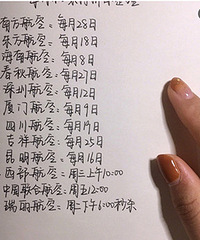 南方航空：每月28日
东方航空：每月18日
海南航空：每月8日
春秋航空：每月27日
深圳航空：每月12日
厦门航空：每月9日
四川航空：每月19日
吉祥航空：每月25日
昆明航空：每月16日
西部航空：周三上午10:00
中国联合航空：周五12:00
瑞丽航空：周二下午6:00秒杀